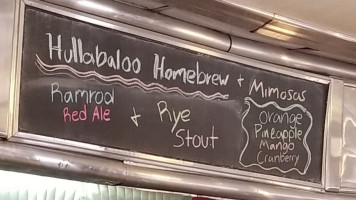 Hullabaloo Homebrew + Mimosas
Ramrod
Red Ale
+ Rye
Stout
Orange
Pineapple
Mango
Cranberry